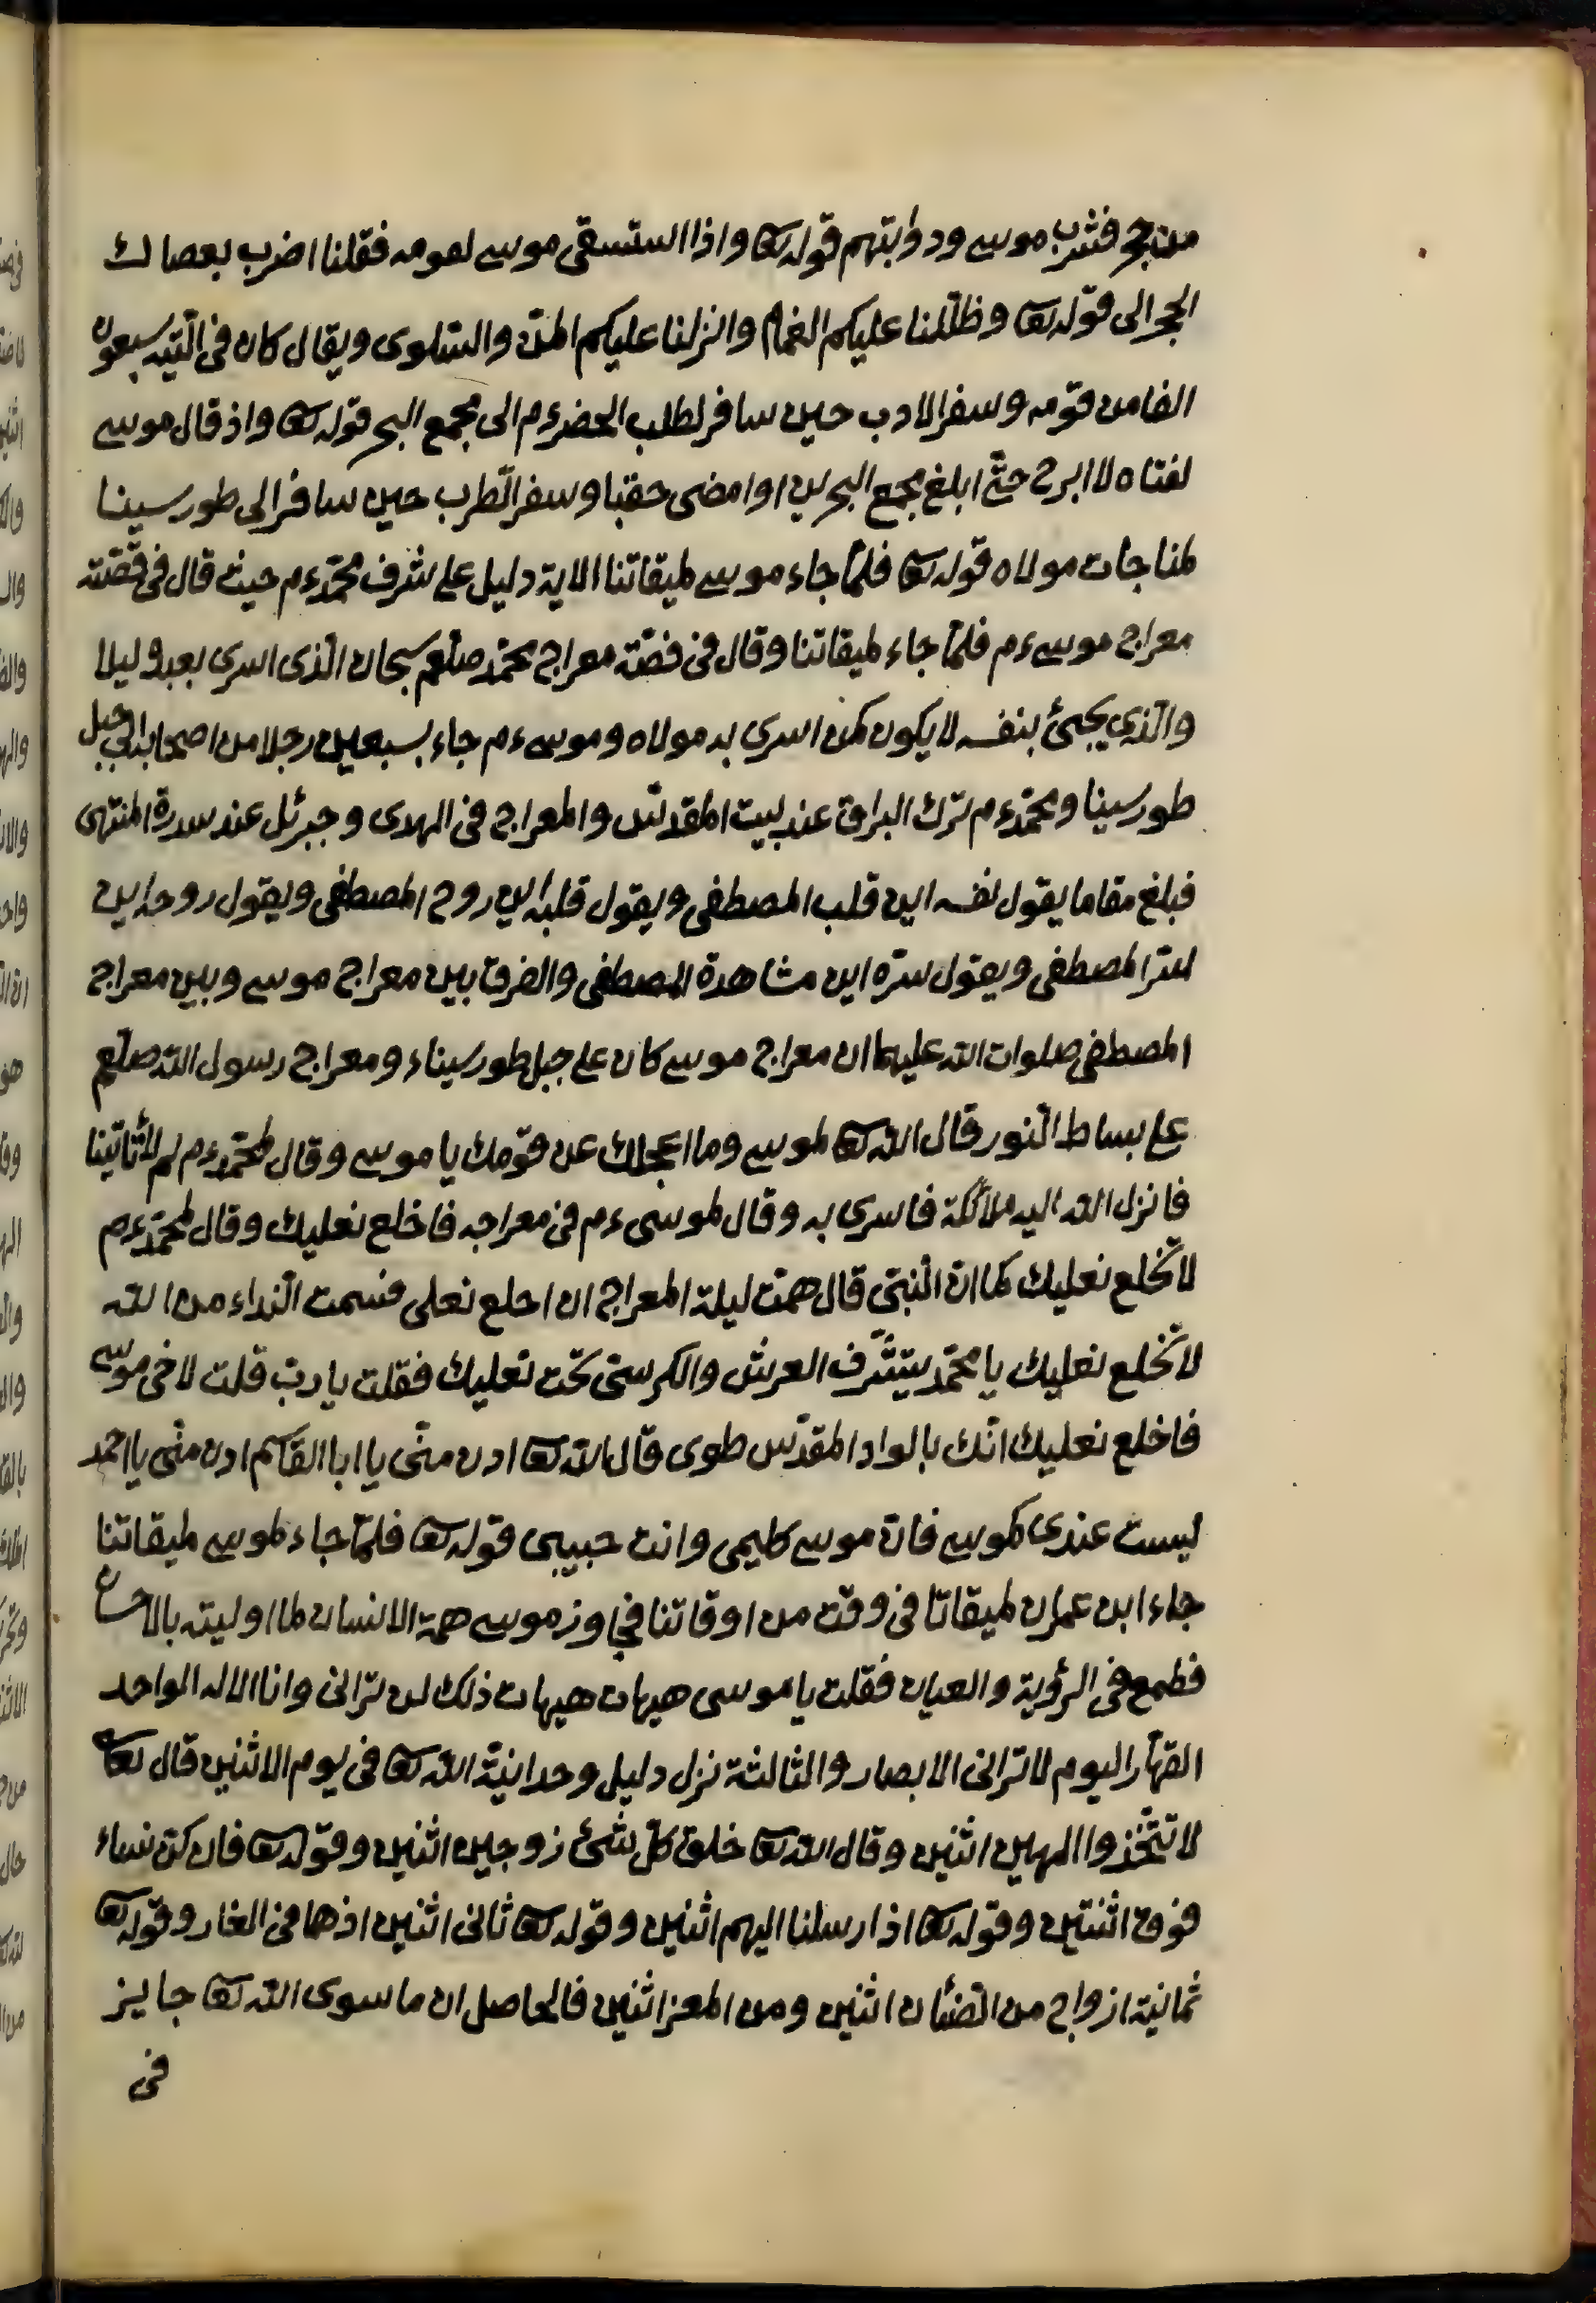 من حجر فشرب موسى ودوابتهم قوله تعا واذا استسقى موسى لقومه فقلنا اضرب بعصاك
الحجر الى قوله تعا وظللنا عليكم الغمام وانزلنا عليكم المن والسّلوى ويقال كان فى التّيه سبعون
الفا من قومه وسفر الادب حين سافر لطلب الخضر ءم الى مجمع البحر قوله تعا واذ قال موسى
لفتاه لا ابرح حتّى ابلغ مجمع البحرين او امضى حقبا وسفر الطّرب حين سافر الى طور سينا
لمناجات مولاه قوله تعا فلمّا جاء موسى لميقاتنا الاية دليل على شرف محمّد ءم حيث قال فى قصّته
معراج موسى ءم فلمّا جاء لميقاتنا وقال فى قصّة معراج محمّد صلّعم سبحان الّذى اسرى بعبده ليلا
والّذى يجئ بنفسه لا يكون كمن اسرى به مولاه وموسى ءم جاء بسبعين رجلا من اصحابه الى جبل
طور سينا ومحمّد ءم ترك البراق عند بيت المقدّس والمعراج فى الهدى وجبرئل عند سدرة المنتهى
فبلغ مقاما يقول نفسه اين قلب المصطفى ويقول قلبه اين روح المصطفى ويقول روحه اين
سرّ المصطفى ويقول سرّه اين مشاهدة المصطفى والفرق بين معراج موسى وبين معراج
المصطفى صلوات الله عليهما ان معراج موسى كان على جبل طور سيناء ومعراج رسول الله صلّعم
على بساط النّور قال الله تعا لموسى وما اعجلك عن قومك يا موسى وقال لمحمّد ءم لم لا تأتينا
فانزل الله اليه ملائكة فاسرى به وقال لموسى ءم فى معراجه فاخلع نعليك وقال لمحمّد ءم
لا تخلع نعليك كما انّ النّبىّ قال هممت ليلة المعراج ان اخلع نعلى فسمعت النّداء من الله
لا تخلع نعليك يا محمّد يتشّرف العرش والكرسىّ تحت نعليك فقلت يا ربّ قلت لاخى موسى
فاخلع نعليك انّك بالواد المقدّس طوى قال الله تعا ادن منّى يا ابا القاسم ادن منّى يا احمد
ليست عندى كموسى فانّ موسى كليمى وانت حبيبى قوله تعا فلمّا جاء موسى لميقاتنا
جاء ابن عمران لميقاتنا فى وقت من اوقاتنا فجاوز موسى همة الانسان لما اوليته بالاحسان
فطمع فى الرؤية والعيان فقلت يا موسى هيهات هيهات ذلك لن ترانى وانا الاله الواحد
القهّار اليوم لا ترانى الابصار والثالثة نزل دليل وحدانيّة الله تعا فى يوم الاثنين قال تعا
لا تتّخذوا الهين اثنين وقال الله تعا خلق كلّ شئ زوجين اثنين وقوله تعا فان كنّ نساء
فوق اثنتين وقوله تعا اذ ارسلنا اليهم اثنين وقوله تعا ثانى اثنين اذ هما فى الغار وقوله تعا
ثمانية ازواج من الضّأن اثنين ومن المعز اثنين فالحاصل ان ما سوى الله تعا جايز
فى